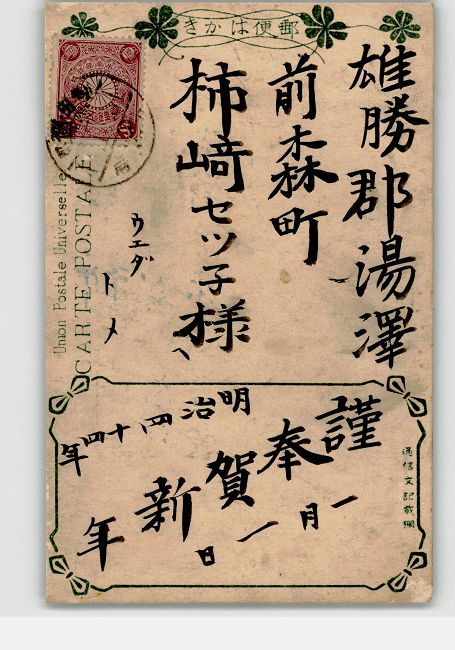 郵便はかき
雄勝郡湯澤
前森町
柿﨑セツ子様
ウエダ
トメ
Union Postale Universelle
CARTE POSTALE
通信文記載欄
謹奉賀新年
明治四十四年
一月一日